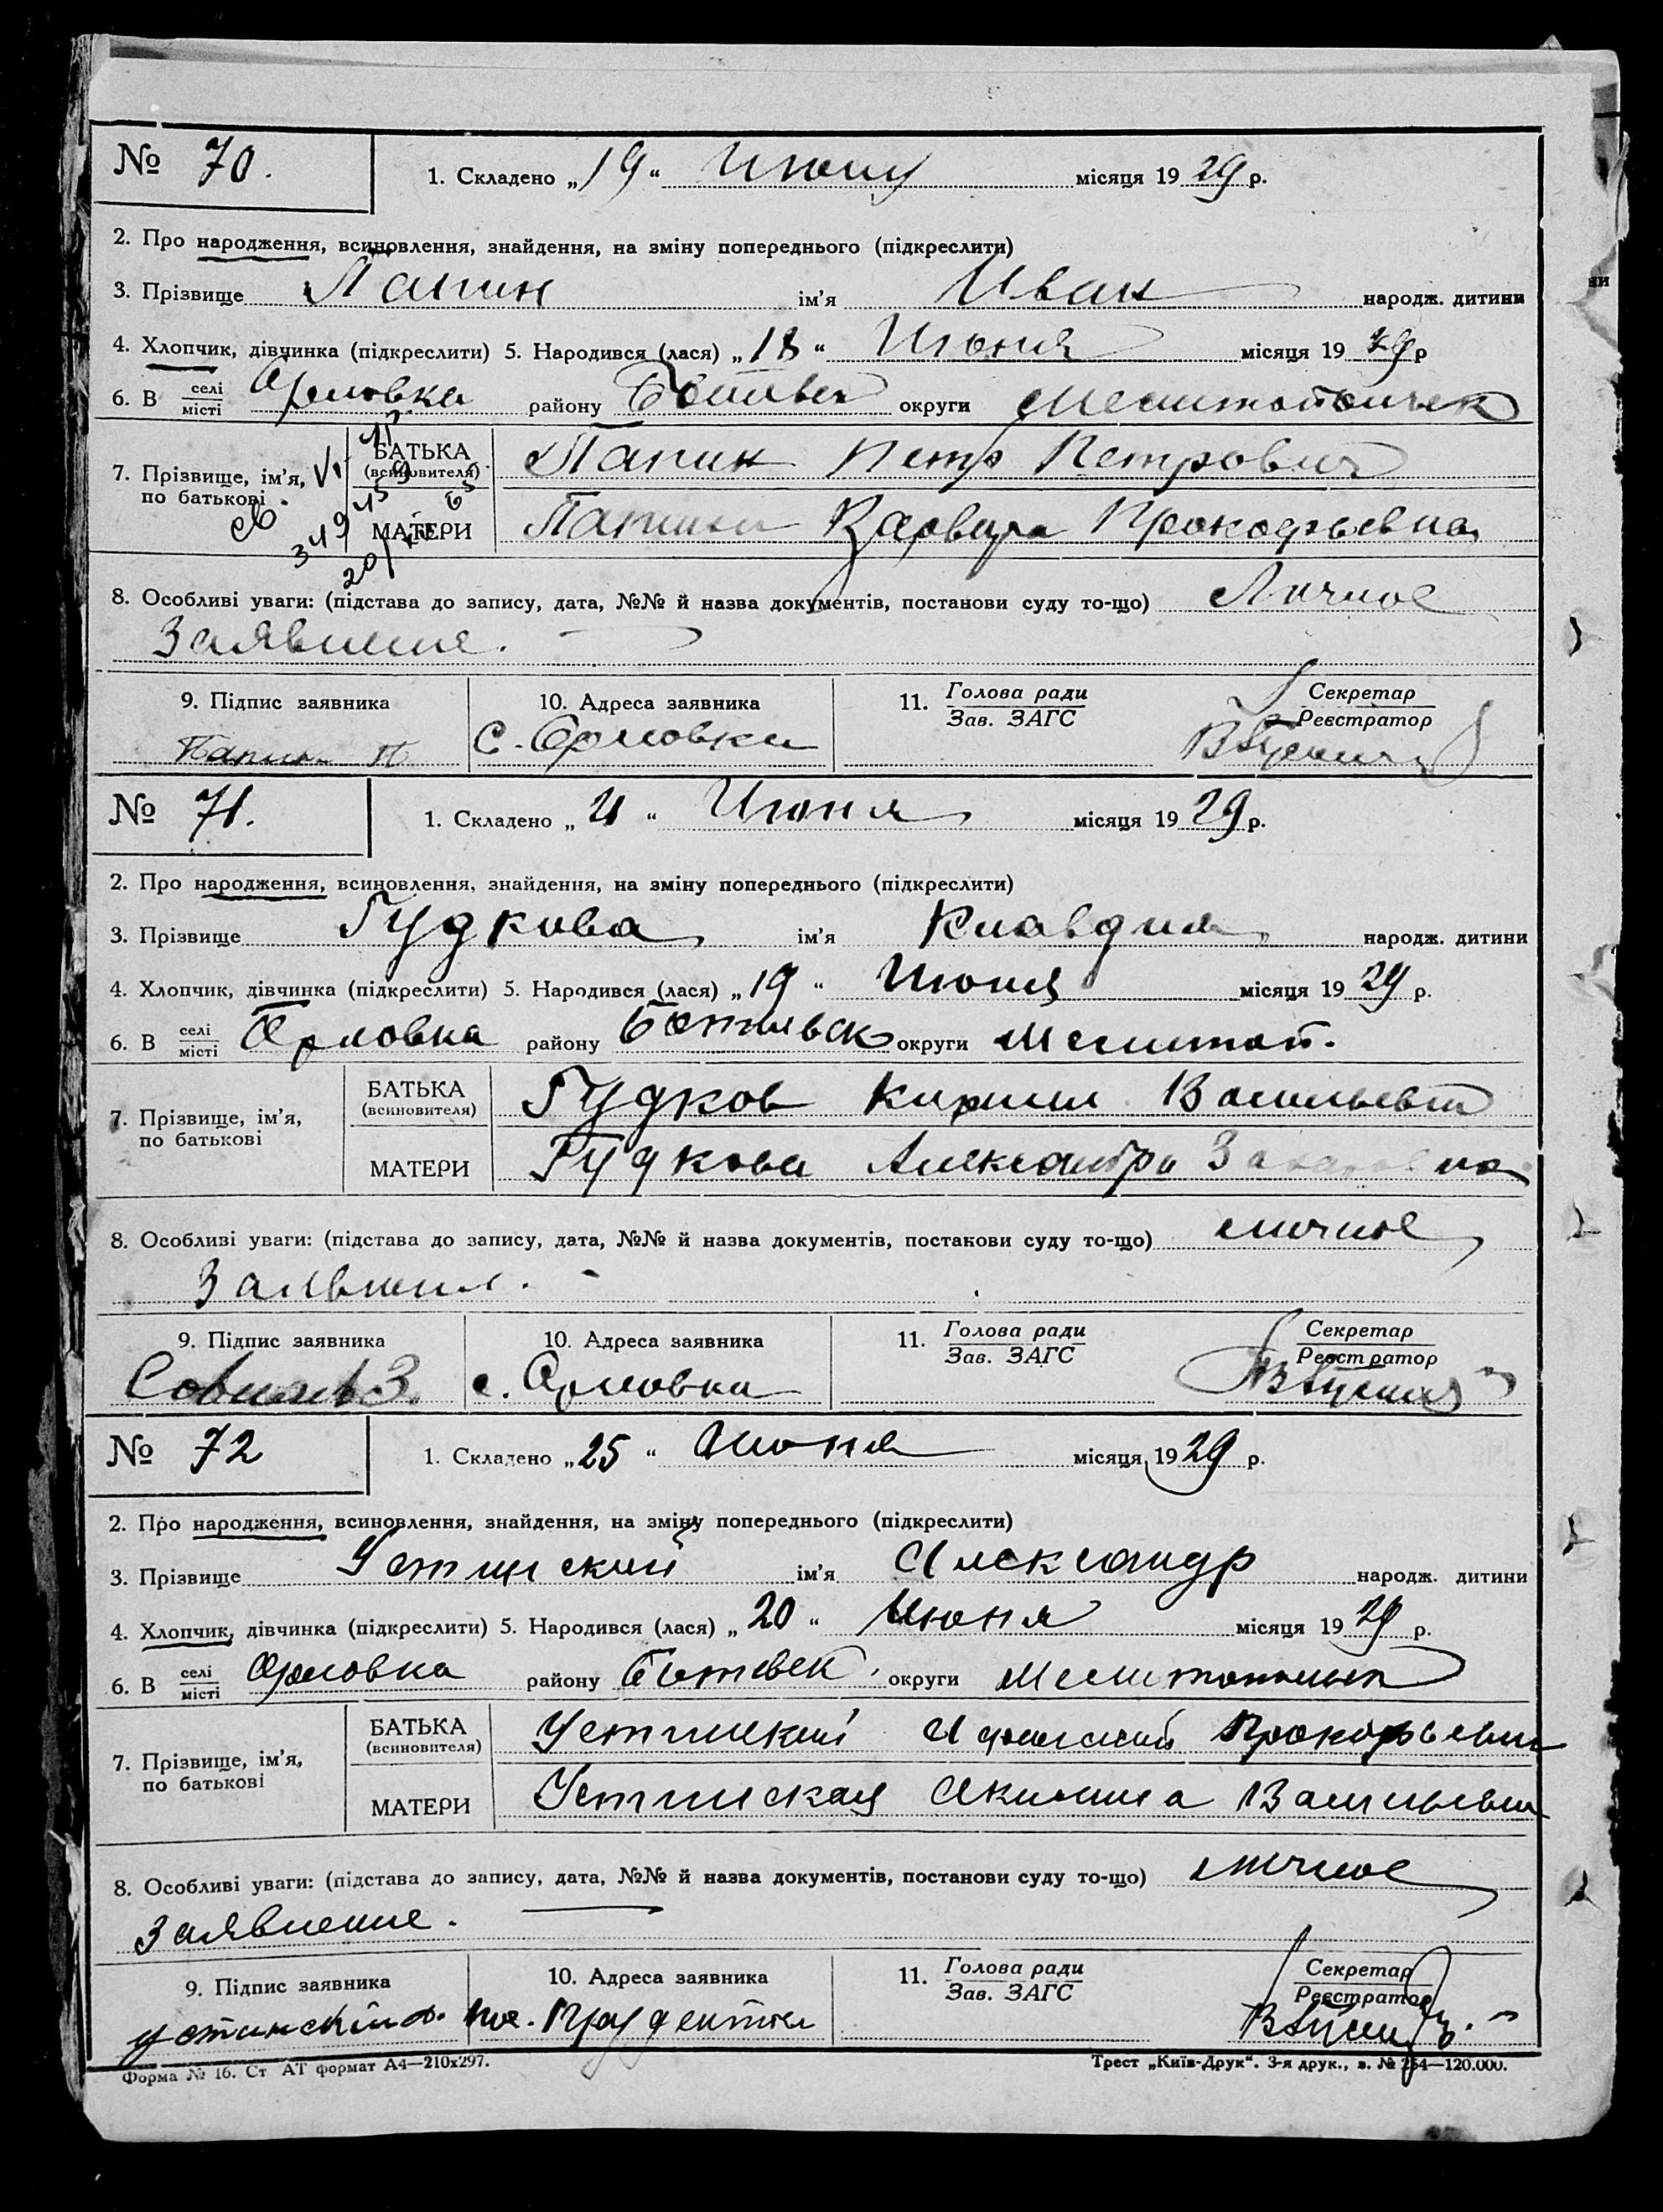 № 70. 1. Складено „19“ Июня місяця 1929 р.
2. Про народження, всиновлення, знайдення, на зміну попереднього (підкреслити)
3. Прізвище Папин ім'я Иван народж. дитини
4. Хлопчик, дівчинка (підкреслити) 5. Народився (лася) „18“ Июня місяця 1929 р
6. В селі/місті Орловка району округи
7. Прізвище, ім'я, по батькові
БАТЬКА (всиновителя) Папин Петр Петрович
МАТЕРИ Папина Варвара Прокофьевна
8. Особливі уваги: (підстава до запису, дата, №№ й назва документів, постанови суду то-що) Личное
Заявление.
9. Підпис заявника 10. Адреса заявника 11. Голова ради/Зав. ЗАГС Секретар/Реєстратор
Папин П С. Орловка
№ 71. 1. Складено „21“ Июня місяця 1929 р.
2. Про народження, всиновлення, знайдення, на зміну попереднього (підкреслити)
3. Прізвище Гудкова ім'я Клавдия народж. дитини
4. Хлопчик, дівчинка (підкреслити) 5. Народився (лася) „19“ Июня місяця 1929 р.
6. В селі/місті Орловка району округи Мелитоп.
7. Прізвище, ім'я, по батькові
БАТЬКА (всиновителя) Гудков Кирилл Васильевич
МАТЕРИ Гудкова Александра Захаровна
8. Особливі уваги: (підстава до запису, дата, №№ й назва документів, постанови суду то-що) личное
Заявление.
9. Підпис заявника 10. Адреса заявника 11. Голова ради/Зав. ЗАГС Секретар/Реєстратор
с. Орловка
№ 72 1. Складено „25“ Июня місяця 1929 р.
2. Про народження, всиновлення, знайдення, на зміну попереднього (підкреслити)
3. Прізвище Устинский ім'я Александр народж. дитини
4. Хлопчик, дівчинка (підкреслити) 5. Народився (лася) „20“ Июня місяця 1929 р.
6. В селі/місті Орловка району Ботевск округи Мелитопольск
7. Прізвище, ім'я, по батькові
БАТЬКА (всиновителя) Устинский Афанасий Прокофьевич
МАТЕРИ Устинская Акилина Васильевна
8. Особливі уваги: (підстава до запису, дата, №№ й назва документів, постанови суду то-що) личное
Заявление.
9. Підпис заявника 10. Адреса заявника 11. Голова ради/Зав. ЗАГС Секретар/Реєстратор
Устинский
Форма № 16. Ст АТ формат А4—210х297. Трест „Київ-Друк“. 3-я друк., з. № 254—120.000.